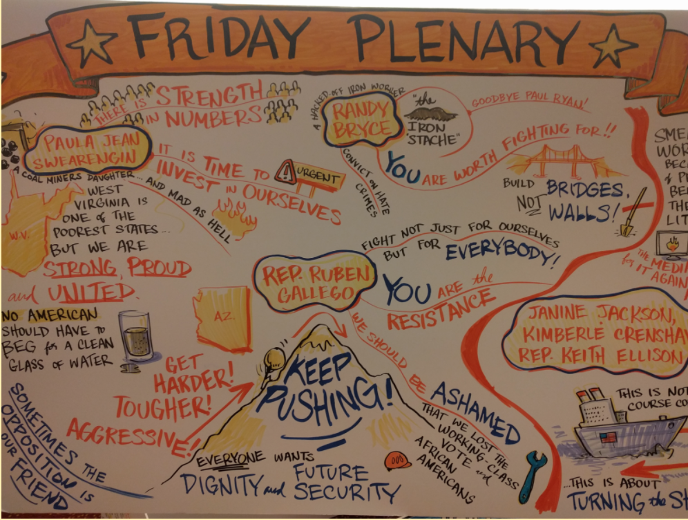 FRIDAY PLENARY
THERE IS STRENGTH
IN NUMBERS
PAULA JEAN
SWEARENGIN
A COAL MINERS DAUGHTER
AND MAD AS HELL
IT IS TIME TO
INVEST IN OURSELVES
URGENT
W.V.
WEST
VIRGINIA IS
ONE OF THE
POOREST STATES...
BUT WE ARE
STRONG, PROUD
and UNITED.
NO AMERICAN
SHOULD HAVE TO
BEG for A CLEAN
GLASS OF WATER
SOMETIMES THE
OPPOSITION IS
OUR FRIEND
A PISSED-OFF IRON WORKER
RANDY
BRYCE
"the
IRON
'STACHE"
GOODBYE PAUL RYAN!
CONVICT ON HATE
CRIMES
YOU ARE WORTH FIGHTING FOR!!
BUILD BRIDGES,
NOT WALLS!
FIGHT NOT JUST FOR OURSELVES
BUT FOR EVERYBODY!
REP. RUBEN
GALLEGO
YOU ARE the
RESISTANCE
AZ.
GET
HARDER!
TOUGHER!
AGGRESSIVE!
KEEP
PUSHING!
WE SHOULD BE ASHAMED
THAT WE LOST THE
WORKING-CLASS
VOTE and
AFRICAN
AMERICANS
EVERYONE WANTS
DIGNITY and FUTURE
SECURITY
SME
WOR
BEC
& P
BE
THE
LIT
THE MEDI
for IT AGAIN
JANINE JACKSON,
KIMBERLE CRENSHA
REP. KEITH ELLISON
THIS IS NOT
COURSE CO
...THIS IS ABOUT
TURNING the SH